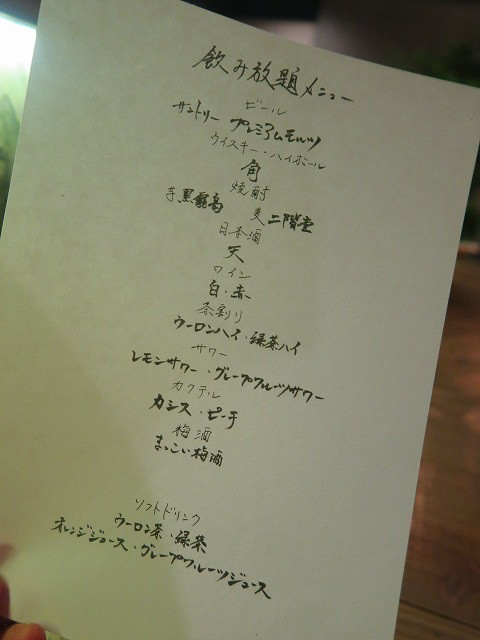 飲み放題メニュー
ビール
サントリー プレミアムモルツ
ウイスキー・ハイボール
角
焼酎
芋 黒霧島 麦 二階堂
日本酒
天
ワイン
白・赤
茶割り
ウーロンハイ・緑茶ハイ
サワー
レモンサワー・グレープフルーツサワー
カクテル
カシス・ピーチ
梅酒
まっこい梅酒
ソフトドリンク
ウーロン茶・緑茶
オレンジジュース・グレープフルーツジュース